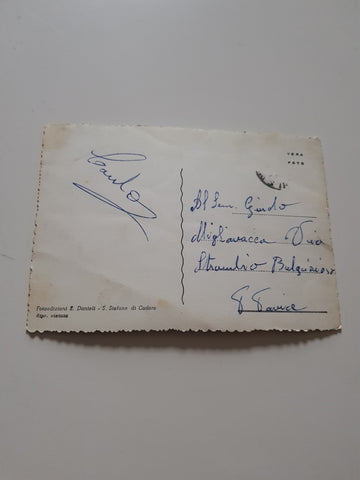 VERA
FOTO
Carlo
Al Sen. Guido
Migliavacca Via
Strambio
P Pavia
Fotoedizioni E. Danieli - S. Stefano di Cadore
Ripr. vietata